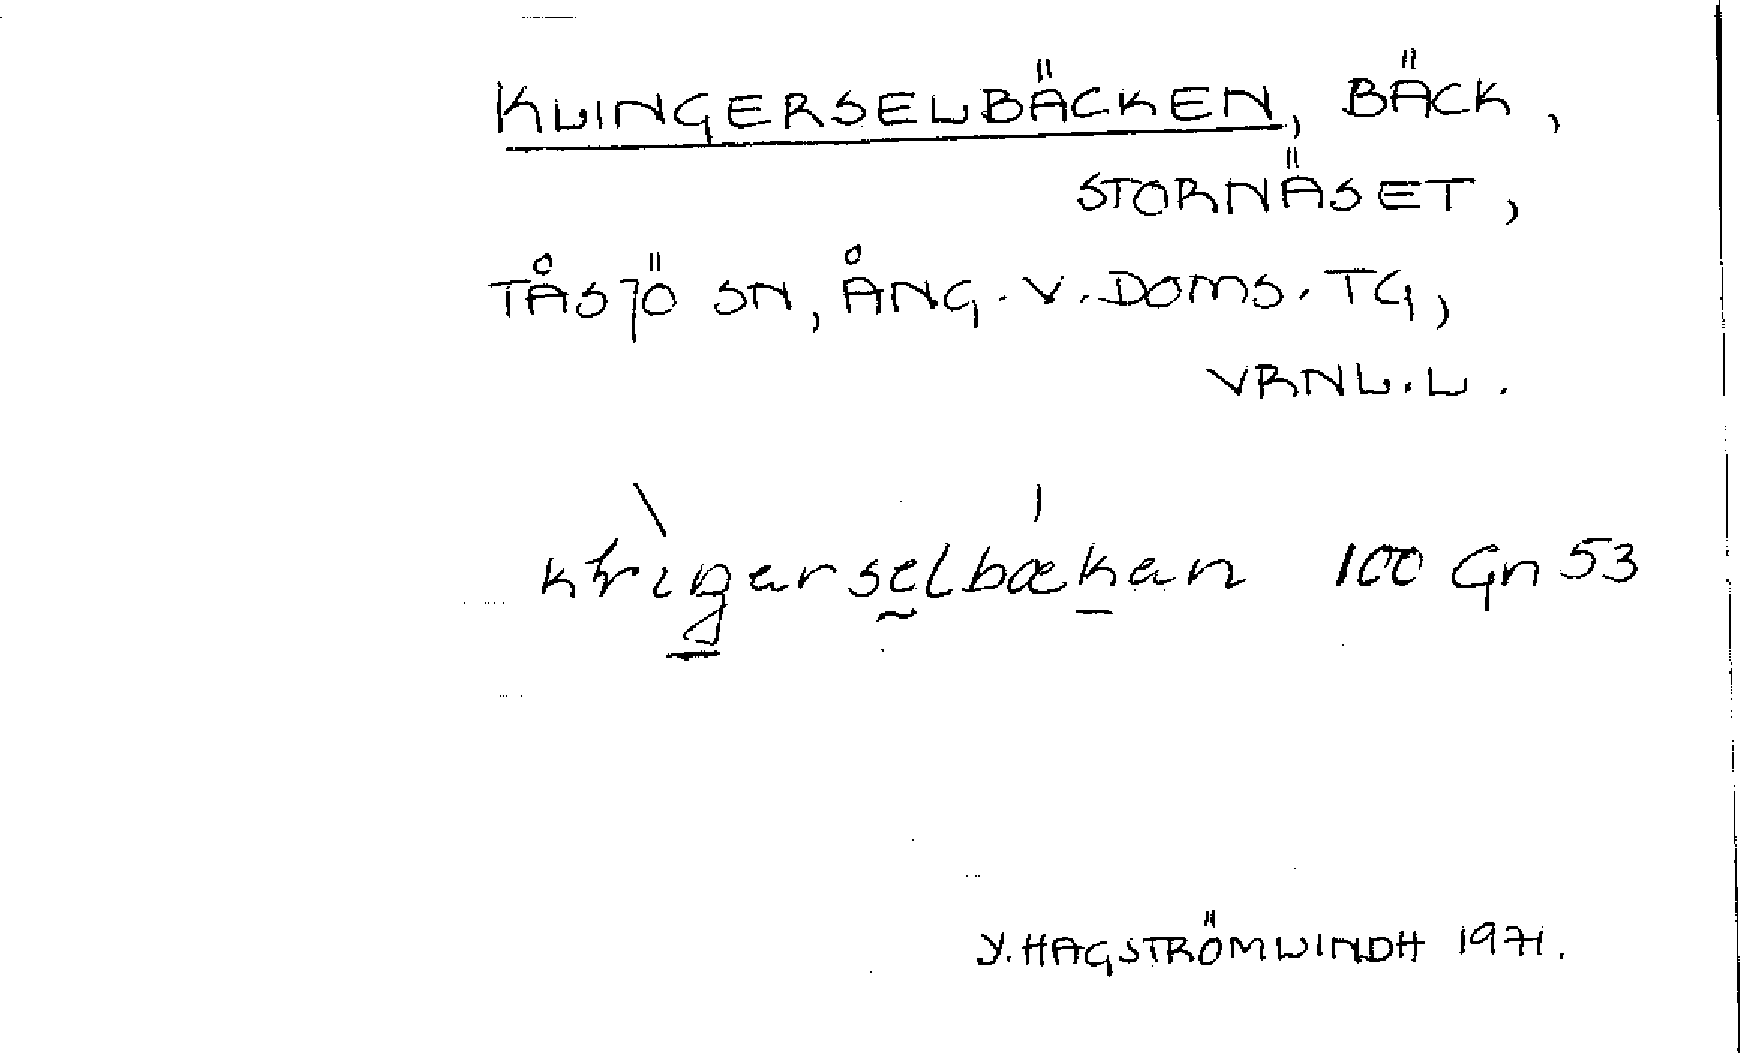 KLINGERSELBÄCKEN, BÄCK,
STORNÄSET,
TÅSJÖ SN, ÅNG. V. DOMS. TG,
VRNL. L.
100 Gn 53
Y. HAGSTRÖMLINDH 1971.